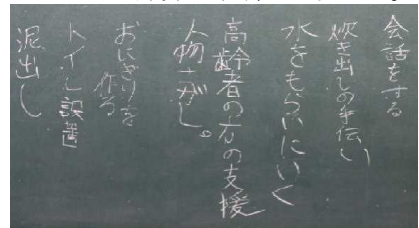 会話をする
炊き出しの手伝い
水をもらいにいく
高齢者の方の支援
人物さがし。
おにぎりを
作る
トイレ設置
泥出し